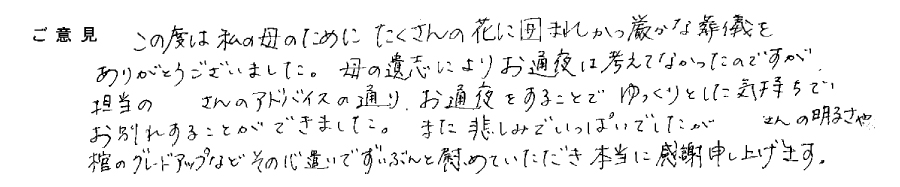 ご意見 この度は私の母のために たくさんの花に囲まれしかつ厳かな葬儀を
ありがとうございました。母の遺志によりお通夜は考えてなかったのですが
担当の さんのアドバイスの通り、お通夜をすることで ゆっくりとした気持ちで
お別れすることができました。また悲しみでいっぱいでしたが さんの明るさや
棺のグレードアップなどその心遣いでずいぶんと慰めていただき本当に感謝申し上げます。